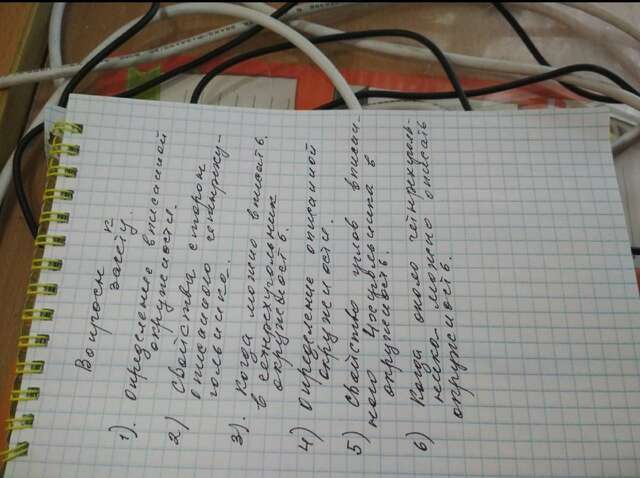 Вопросы к
зачету.
1). Определение вписанной
окружности.
2) Свойства сторон
описанного четырёху-
гольника.
3). Когда можно вписать
в четырехугольник
окружность.
4) Определение описанной
окружности.
5) Свойство углов вписан-
ного 4хугольника в
окружность.
6) Когда около четырехуголь-
ника можно описать
окружность.